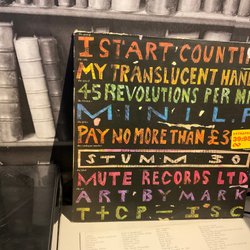 I START COUNTIN
MY TRANSLUCENT HAN
45 REVOLUTIONS PER MI
MINI LP
PAY NO MORE THAN £3
STUMM 30
MUTE RECORDS LTD
ART BY MARK
T+CP-ISC